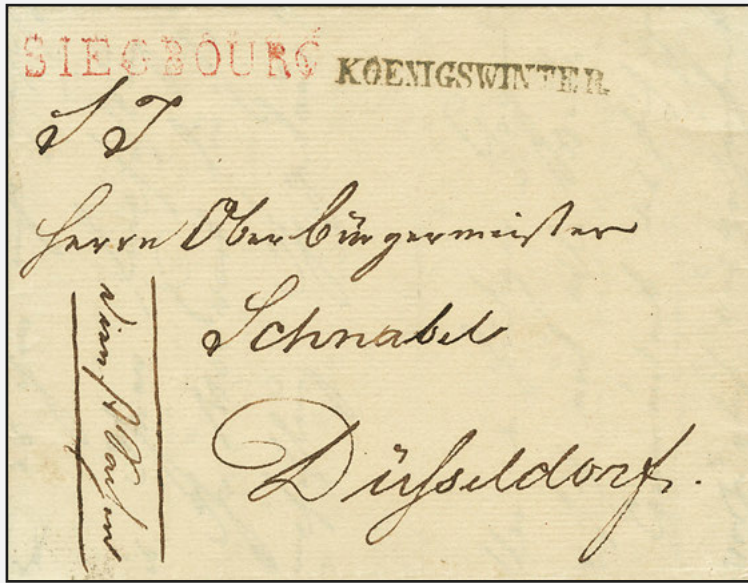 SIEGBOURG KOENIGSWINTER
S T
Herrn Oberbürgermeister
Schnabel
Düsseldorf.
Dienst Sachen